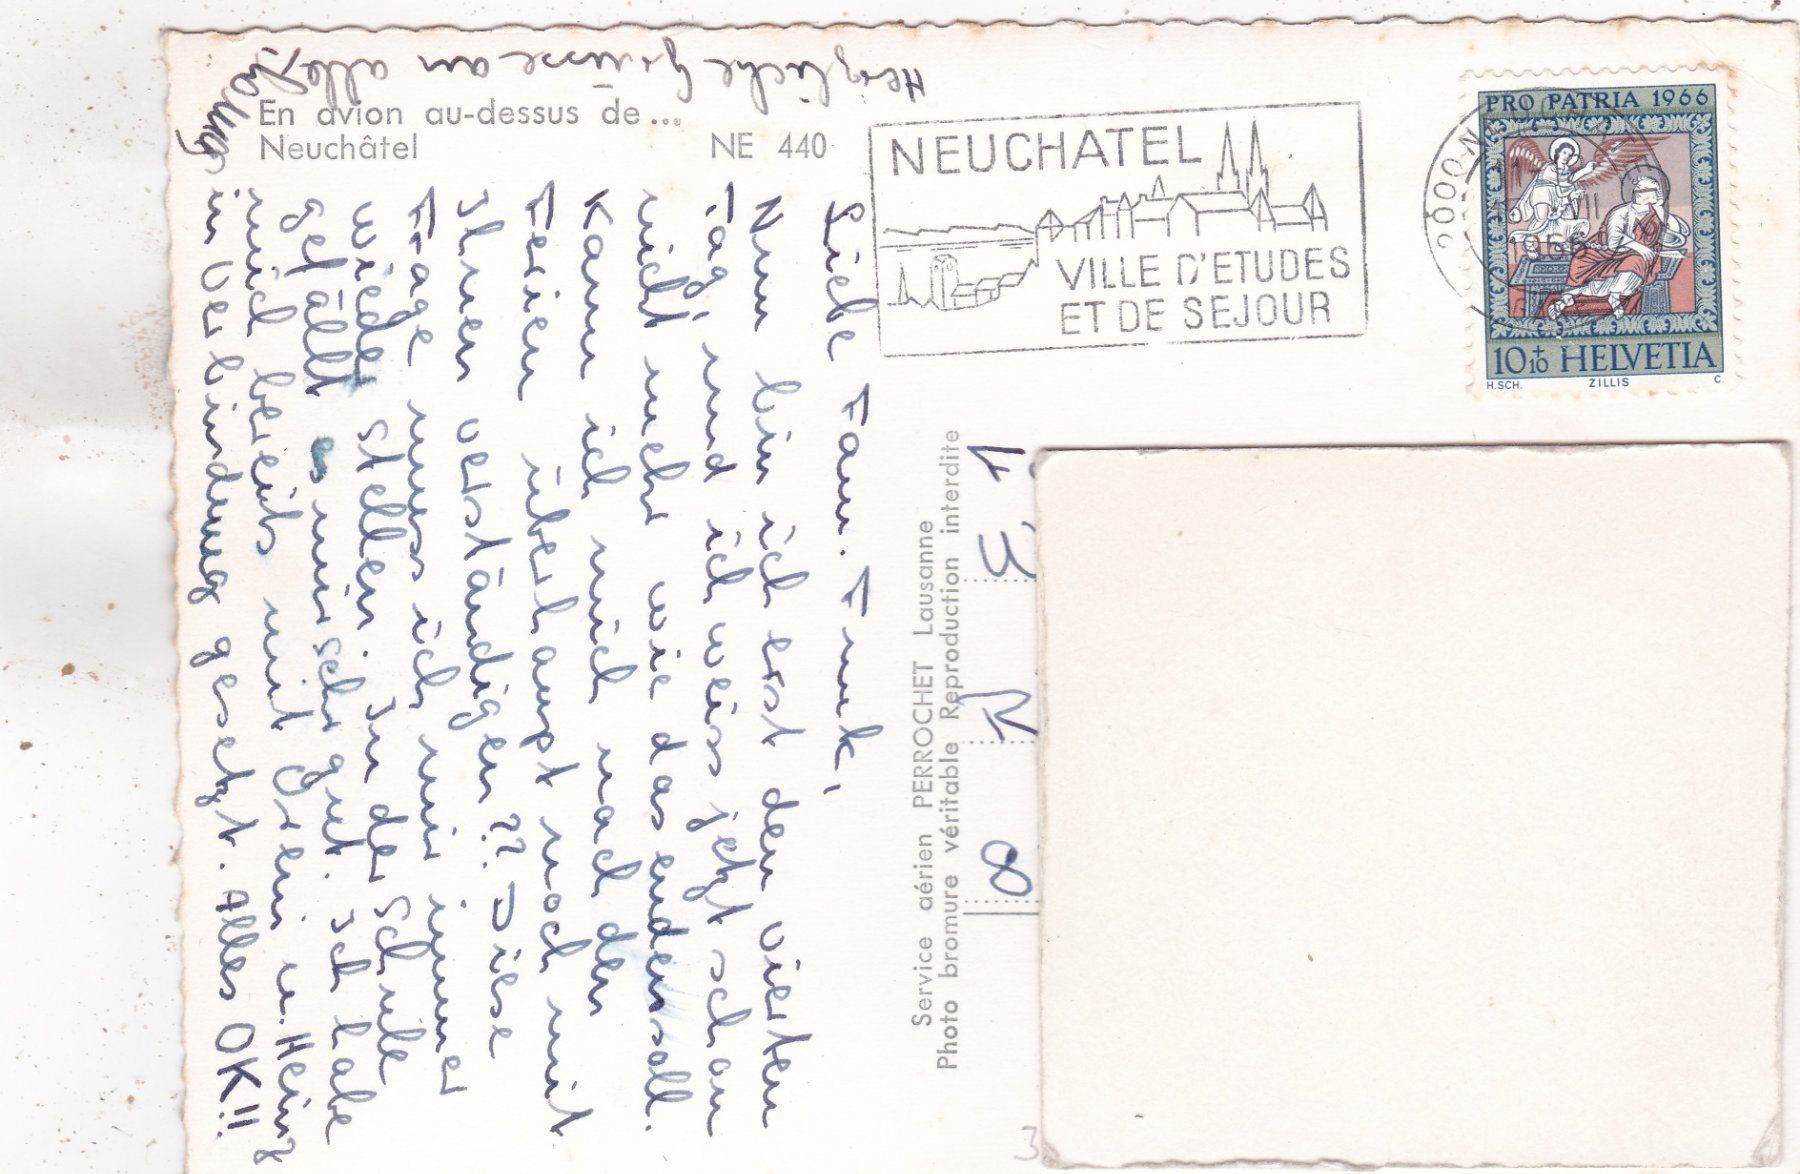 En avion au-dessus de...
Neuchâtel
NE 440
NEUCHATEL
VILLE D'ETUDES
ET DE SEJOUR
2000
PRO PATRIA 1966
10+10 HELVETIA
H.SCH. ZILLIS C.
Liebe Fam. Funk,
Nun bin ich erst den vierten
Tag, und ich weiss jetzt schon
nicht mehr wie das enden soll.
Kann ich mich nach den
Ferien überhaupt noch mit
Ihnen verständigen?? Diese
Frage muss ich mir immer
wieder stellen. In der Schule
gefällt es mir sehr gut. Ich habe
mich bereits mit Greni u. Heinz
in Verbindung gesetzt. Alles OK!!
Herzliche Grüsse an alle
Service aérien PERROCHET Lausanne
Photo bromure véritable Reproduction interdite
8
3